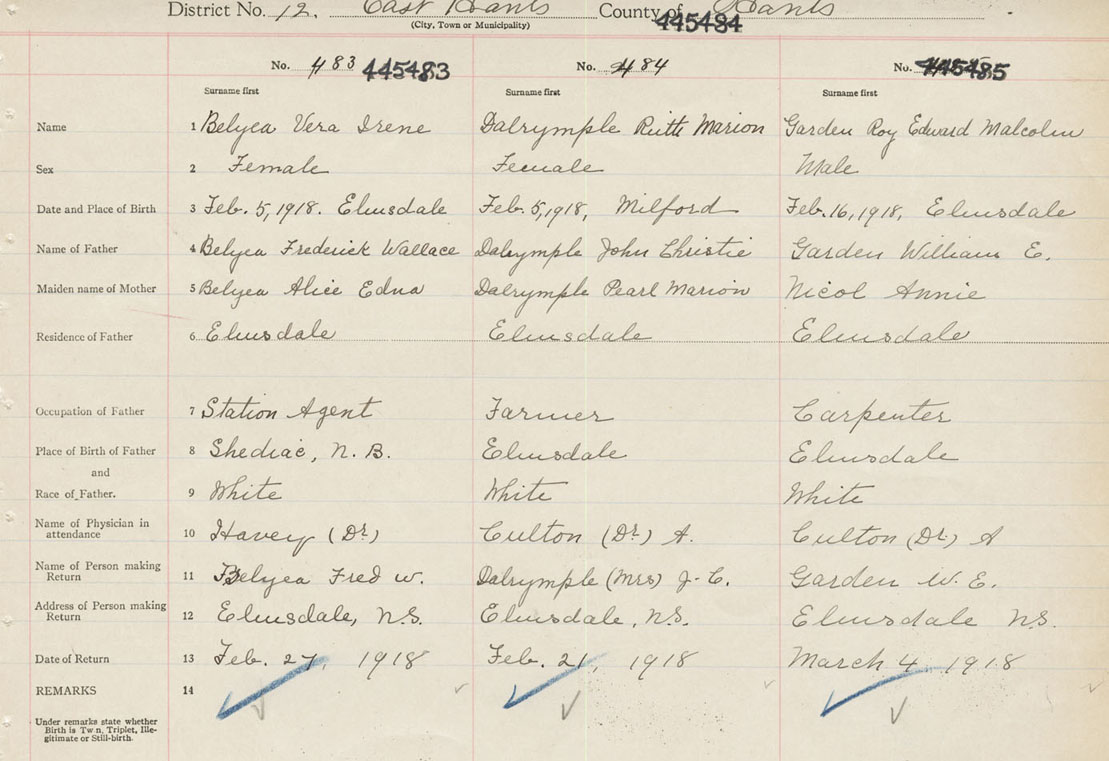 District No. 12. East Hants County of Hants
(City, Town or Municipality)
445484
No. 483 445483 No. 484 No. 445485
Surname first Surname first Surname first
Name 1 Belyea Vera Irene Dalrymple Ruth Marion Garden Roy Edward Malcolm
Sex 2 Female Female Male
Date and Place of Birth 3 Feb. 5, 1918. Elmsdale Feb. 5, 1918, Milford Feb. 16, 1918, Elmsdale
Name of Father 4 Belyea Frederick Wallace Dalrymple John Christie Garden William E.
Maiden name of Mother 5 Belyea Alice Edna Dalrymple Pearl Marion Nicol Annie
Residence of Father 6 Elmsdale Elmsdale Elmsdale
Occupation of Father 7 Station Agent Farmer Carpenter
Place of Birth of Father 8 Shediac, N. B. Elmsdale Elmsdale
and
Race of Father. 9 White White White
Name of Physician in
attendance 10 Havey (Dr) Culton (Dr.) A. Culton (Dr.) A
Name of Person making
Return 11 Belyea Fred W. Dalrymple (Mrs) J. C. Garden W. E.
Address of Person making
Return 12 Elmsdale, N.S. Elmsdale, N.S. Elmsdale N.S.
Date of Return 13 Feb. 27, 1918 Feb. 21, 1918 March 4, 1918
REMARKS 14
Under remarks state whether
Birth is Tw n, Triplet, Ille-
gitimate or Still-birth.